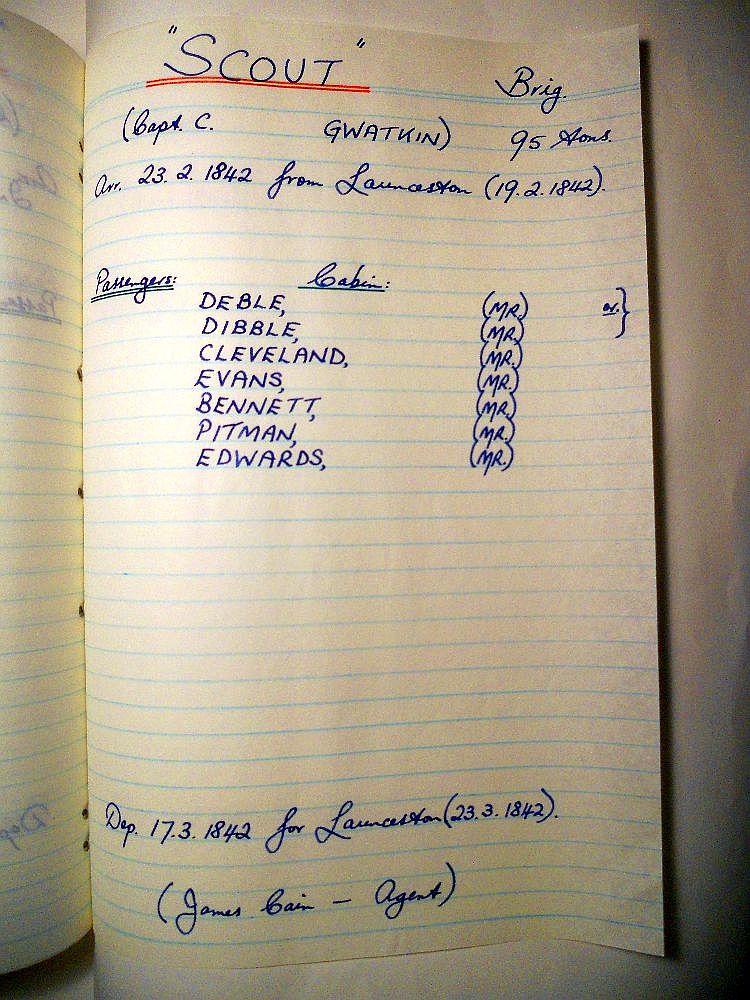 "SCOUT" Brig.
(Capt. C. GWATKIN) 95 tons.
Arr. 23.2.1842 from Launceston (19.2.1842).
Passengers: Cabin:
DEBLE, (MR.) or }
DIBBLE, (MR.)
CLEVELAND, (MR.)
EVANS, (MR.)
BENNETT, (MR.)
PITMAN, (MR.)
EDWARDS, (MR.)
Dep. 17.3.1842 for Launceston (23.3.1842).
(James Cain - Agent)